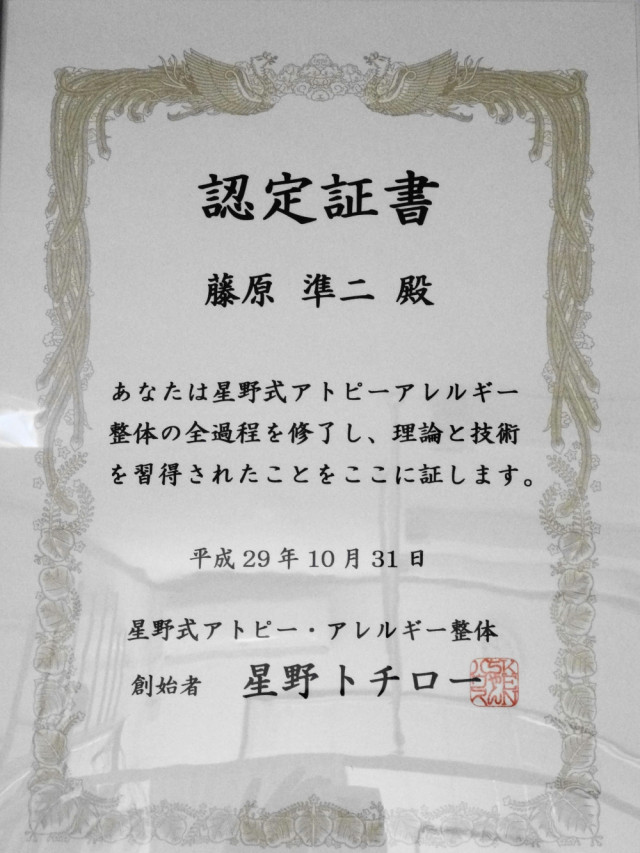 認定証書
藤原 準二 殿
あなたは星野式アトピーアレルギー
整体の全過程を修了し、理論と技術
を習得されたことをここに証します。
平成29年10月31日
星野式アトピー・アレルギー整体
創始者 星野トチロー